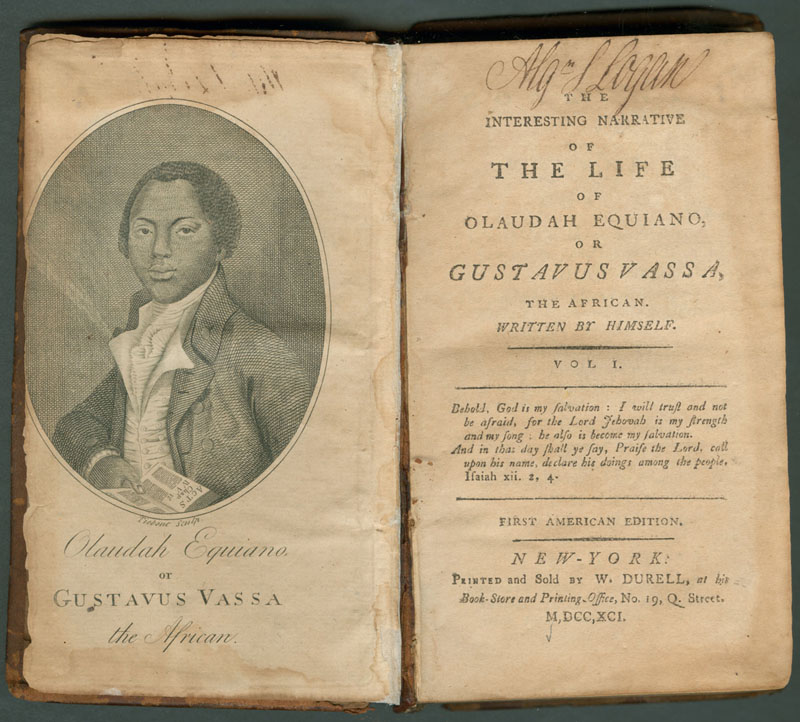 Tiebout Sculp.
Olaudah Equiano,
or
GUSTAVUS VASSA
the African.
Algn S Logan
THE
INTERESTING NARRATIVE
OF
THE LIFE
OF
OLAUDAH EQUIANO,
OR
GUSTAVUS VASSA,
THE AFRICAN.
WRITTEN BY HIMSELF.
VOL I.
Behold, God is my ſalvation : I will truſt and not
be afraid, for the Lord Jehovah is my ſtrength
and my ſong ; he alſo is become my ſalvation.
And in that day ſhall ye ſay, Praiſe the Lord, call
upon his name, declare his doings among the people.
Iſaiah xii. 2, 4.
FIRST AMERICAN EDITION.
NEW-YORK:
PRINTED and Sold BY W. DURELL, at his
Book-Store and Printing-Office, No. 19, Q. Street.
M,DCC,XCI.